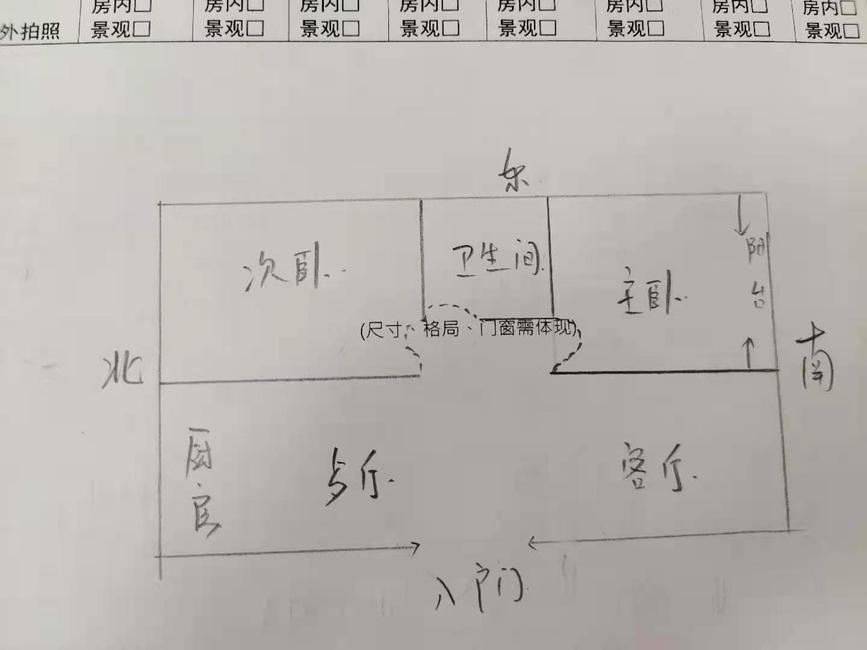 房内□ 房内□ 房内□ 房内□ 房内□ 房内□ 房内□ 房内□
外拍照 景观□ 景观□ 景观□ 景观□ 景观□ 景观□ 景观□ 景观□
东
次卧
卫生间
主卧
阳台
(尺寸、格局、门窗需体现)
北
南
厨房
客厅
入户门